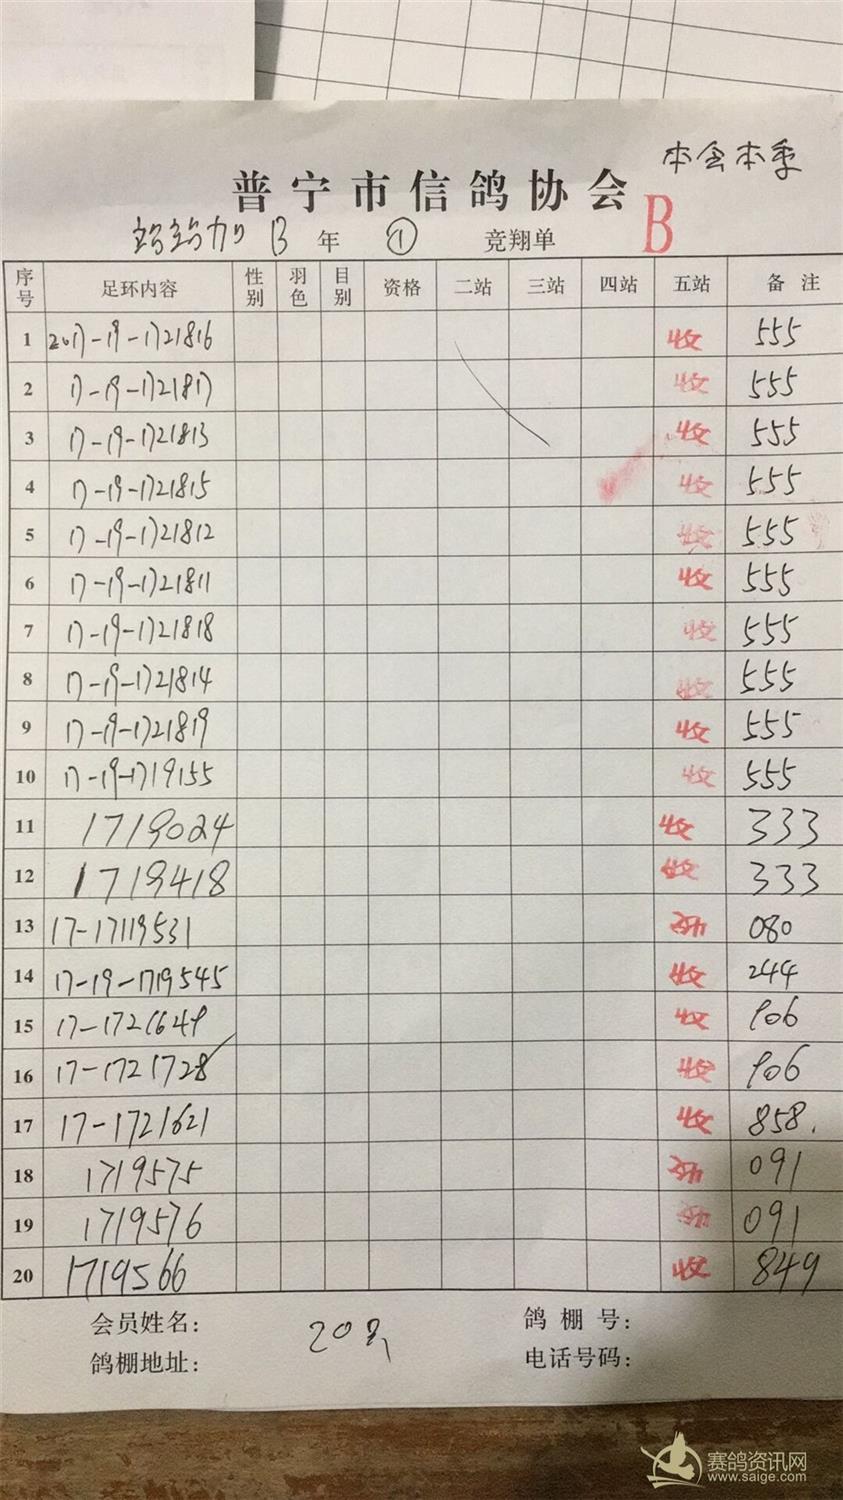 本会本季
普宁市信鸽协会
站站加B 年 ① 竞翔单 B
序号 足环内容 性别 羽色 目别 资格 二站 三站 四站 五站 备注
1 2017-19-1721816 收 555
2 17-19-1721817 收 555
3 17-19-1721813 收 555
4 17-19-1721815 收 555
5 17-19-1721812 收 555
6 17-19-1721811 收 555
7 17-19-1721818 收 555
8 17-19-1721814 收 555
9 17-19-1721819 收 555
10 17-19-1719155 收 555
11 1719024 收 333
12 1719418 收 333
13 17-17119531 收 080
14 17-19-1719545 收 244
15 17-1721649 收 906
16 17-1721728 收 906
17 17-1721621 收 858.
18 1719575 收 091
19 1719576 收 091
20 1719566 收 849
会员姓名: 20 鸽棚号:
鸽棚地址: 电话号码:
赛鸽资讯网
www.saige.com